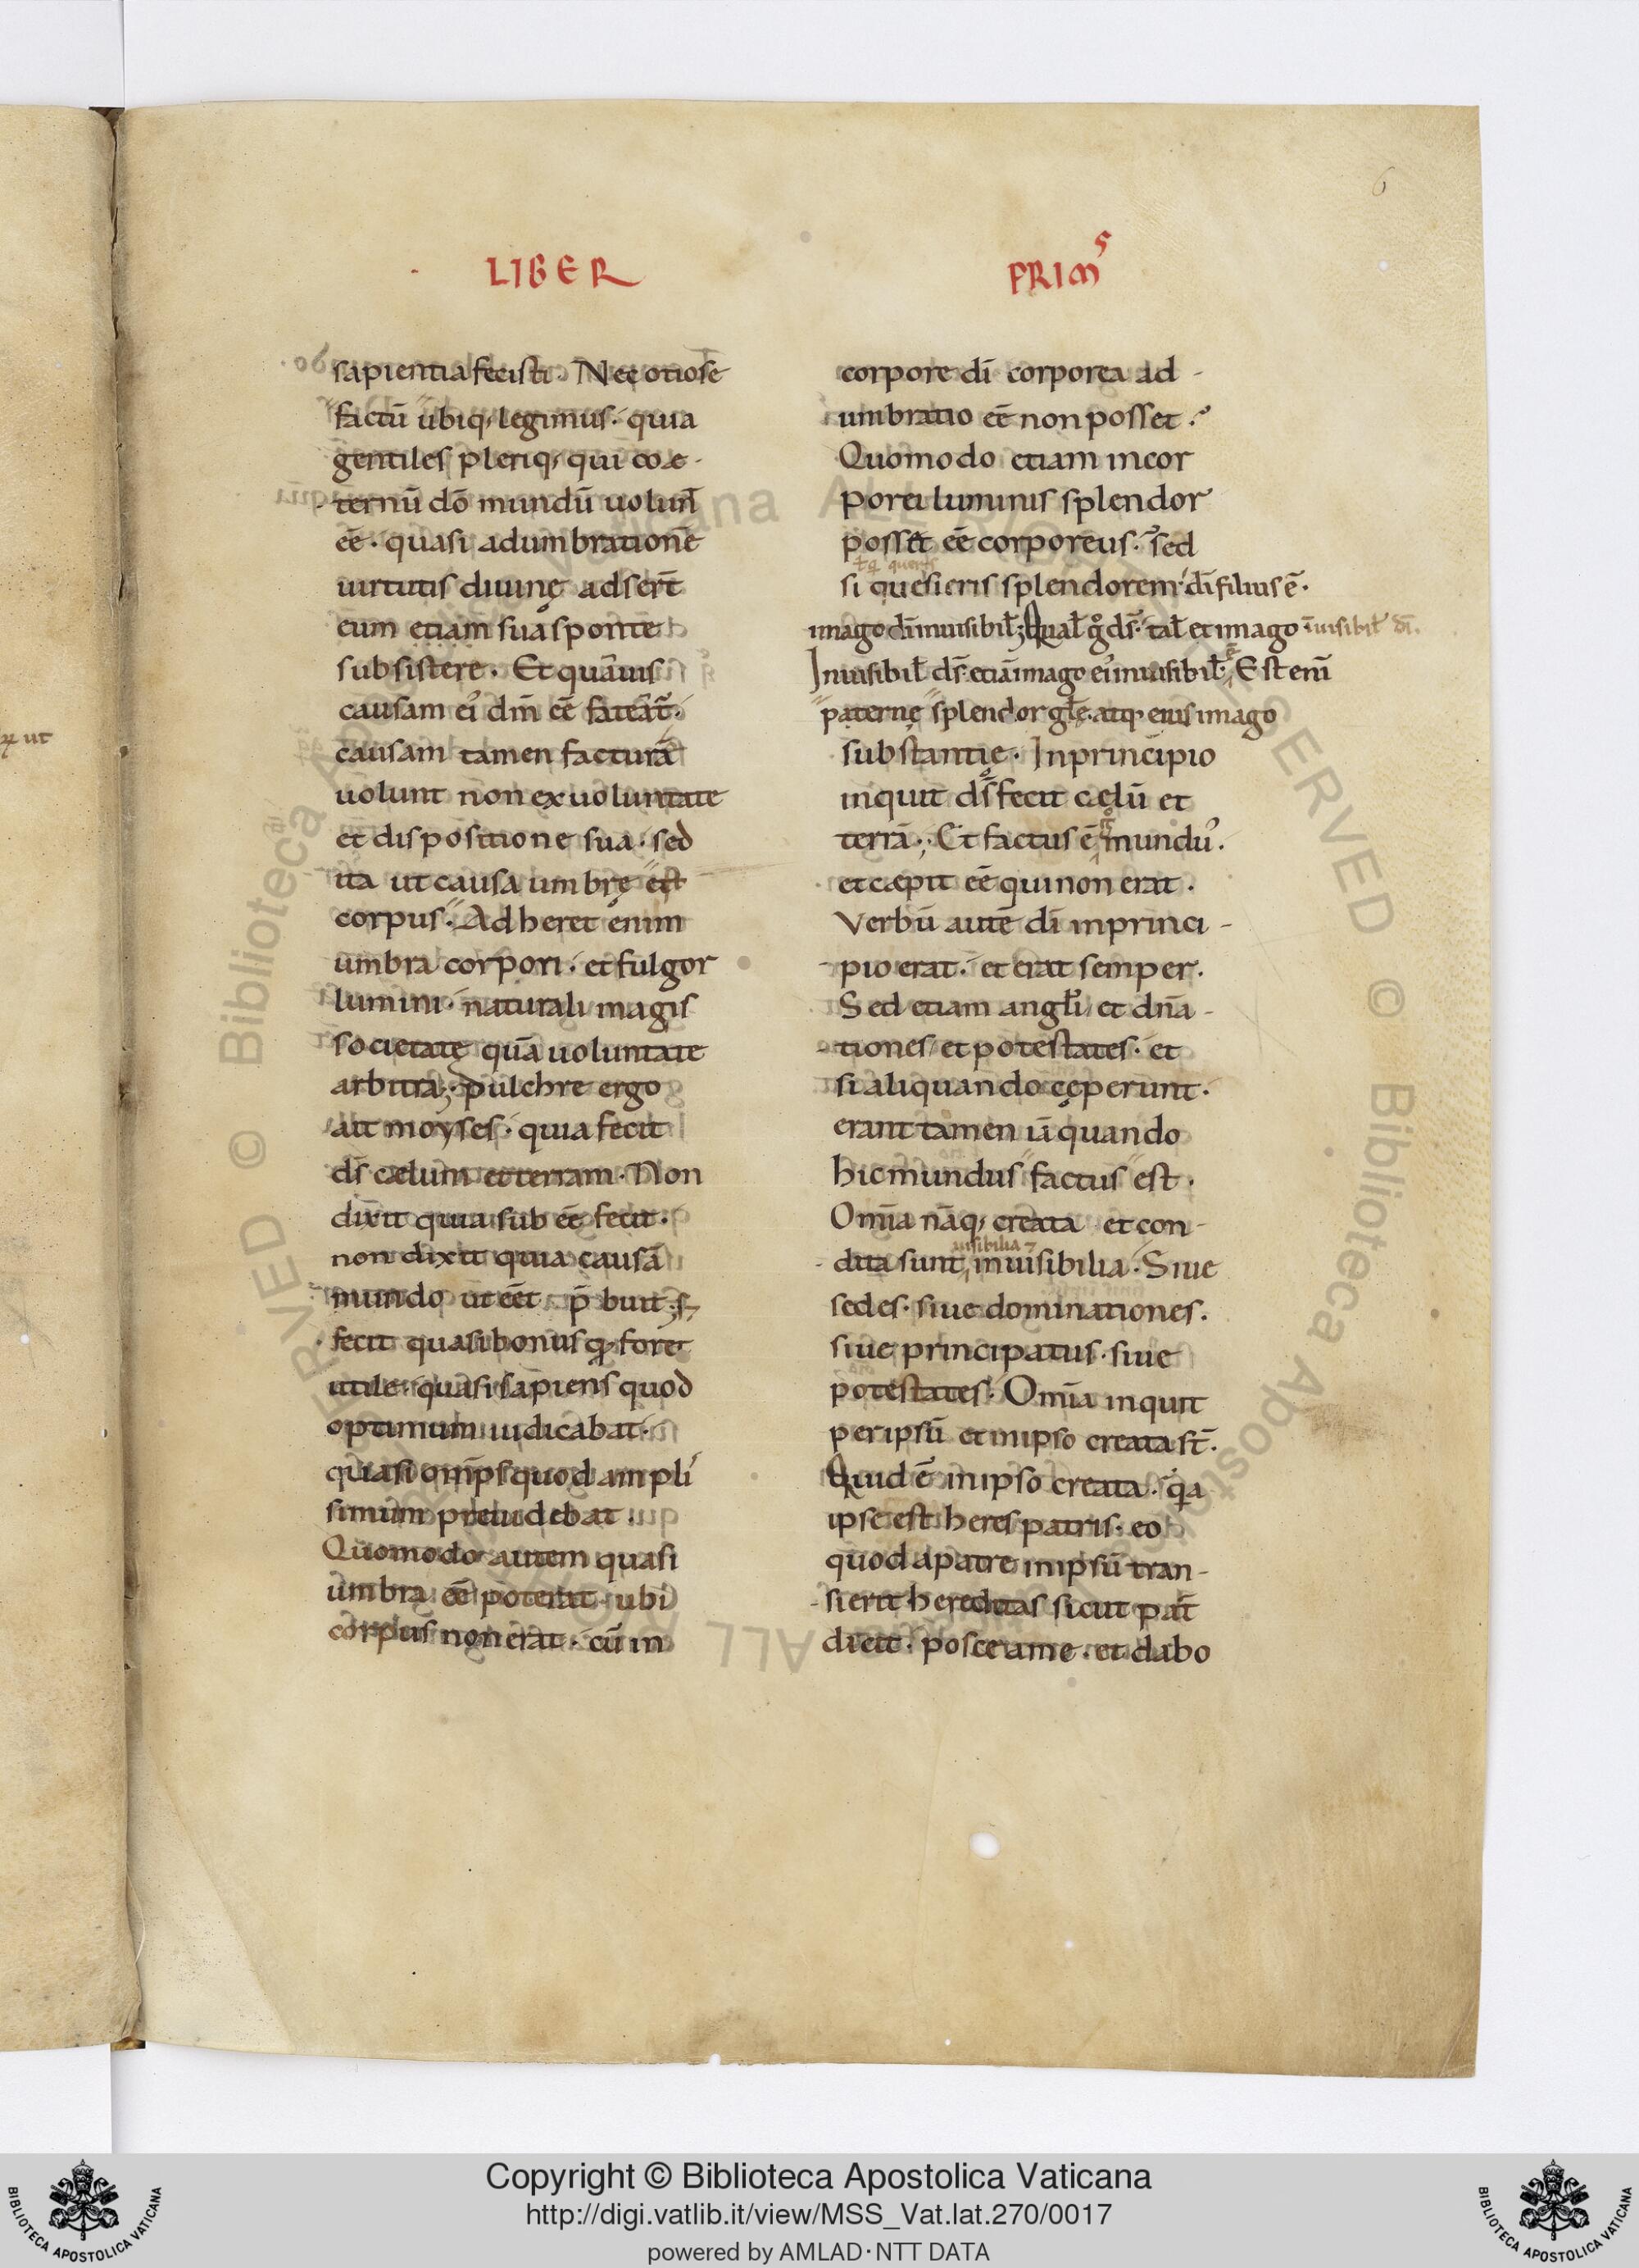 6
LIBER
PRIMꝰ
sapientia fecisti. Nec otiose
factū ubiq; legimus. quia
gentiles pleriq; qui coæ-
ternū dō mundū uolun̄
eē. quasi adumbrationē
uirtutis diuinę adser̄t
eum etiam sua sponte
subsistere. Et quāuis
causam eiꝰ dm̄ eē fateāt᷑.
causam tamen facturā
uolunt non ex uoluntate
et dispositione sua. sed
ita ut causa umbrę est
corpus. Adheret enim
umbra corpori. et fulgor
lumini. naturali magis
societate quā uoluntate
arbitra; pulchre ergo
ait moyses. quia fecit
ds̄ cælum et terram. Non
dixit quia sub eē fecit.
non dixit quia causā
mundo ut eēt p̄buit; s;
fecit quasi bonus qđ foret
utile. quasi sapiens quod
optimum iudicabat.
quasi omīps quod ampli
simum preuidebat.
Quomodo autem quasi
umbra eē poterat. ubi
corpus non erat. cū in
corpore dī corporea ad-
umbratio eē non posset.
Quomodo etiam incor
porei luminis splendor
posset eē corporeus. sed
si quesieris splendorem. dī filius ē.
imago dī inuisibił; Qual̄ gͦ ds̄. tal̄ et imago īuisibil̄ dī.
Inuisibil̄ ds̄. etiā imago eiꝰ inuisibil̄. Est enī
paternę splendor gl̄ę. atq; eius imago
substantię. In principio
inquit ds̄ fecit cęlū et
terrā. Et factus ē mundꝰ.
et cæpit eē qui non erat.
Verbū autē dī in princi-
pio erat. et erat semper.
Sed etiam angl̄i et dn̄a-
tiones et potestates. et
si aliquando cęperunt.
erant tamen iā quando
hic mundus factus est.
Omīa nāq; creata et con-
uisibilia ⁊
dita sunt inuisibilia. Siue
sedes. siue dominationes.
siue principatus. siue
potestates. Omīa inquit
per ipsū et in ipso creata st̄.
Quid ē in ipso creata. qa
ipse est heres patris. eo
quod a patre in ipsū tran-
sierit hereditas sicut pat̄
dicit. posce a me. et dabo
Copyright © Biblioteca Apostolica Vaticana
http://digi.vatlib.it/view/MSS_Vat.lat.270/0017
powered by AMLAD·NTT DATA
BIBLIOTECA APOSTOLICA VATICANA
BIBLIOTECA APOSTOLICA VATICANA